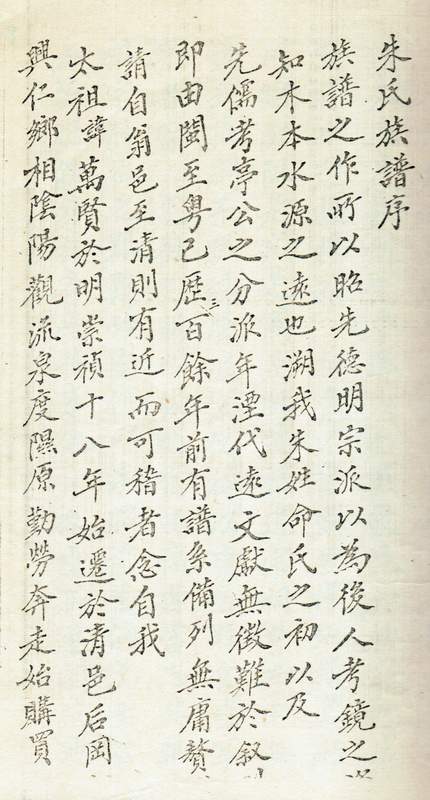 朱氏族譜序
族譜之作所以昭先德明宗派以為後人考鏡之
知木本水源之遠也溯我朱姓命氏之初以及
先儒考亭公之分派年湮代遠文獻無徵難於叙
即由閩至粵已歷三百餘年前有譜系備列無庸贅
請自翁邑至清則有近而可稽者念自我
太祖諱萬賢於明崇禎十八年始遷於清邑后岡
興仁鄉相陰陽觀流泉度隰原勤勞奔走始購買